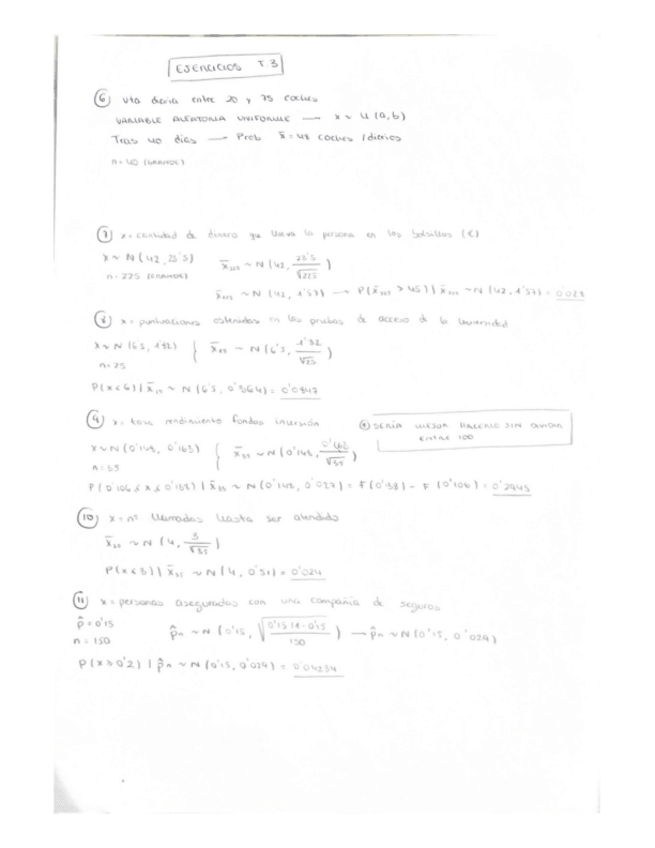 EJERCICIOS T.3
⑥ Vta diaria entre 20 y 75 coches
VARIABLE ALEATORIA UNIFORME → x ~ U(a,b)
Tras 40 días → Prob x̄ = 48 coches / diarios
n = 40 (GRANDE)
⑦ x = cantidad de dinero que lleva la persona en los bolsillos (€)
x ~ N(42, 23'5) x̄₂₂₅ ~ N(42, 23'5/√225)
n = 225 (GRANDE)
x̄₂₂₅ ~ N(42, 1'57) → P(x̄₂₂₅ > 45) | x̄₂₂₅ ~ N(42, 1'57) = 0'028
⑧ x = puntuaciones obtenidas en las pruebas de acceso de la Universidad
x ~ N(6'5, 1'82) { x̄₂₅ ~ N(6'5, 1'82/√25)
n = 25
P(x < 6) | x̄₂₅ ~ N(6'5, 0'364) = 0'0847
⑨ x = tasa rendimiento fondos inversión
⊛ SERÍA MEJOR HACERLO SIN DIVIDIR ENTRE 100
x ~ N(0'148, 0'163) { x̄₃₅ ~ N(0'148, 0'163/√35)
n = 35
P(0'106 < x < 0'138) | x̄₃₅ ~ N(0'148, 0'027) = F(0'138) - F(0'106) = 0'2945
⑩ x = nº llamadas hasta ser atendido
x̄₃₅ ~ N(4, 3/√35)
P(x < 3) | x̄₃₅ ~ N(4, 0'51) = 0'024
⑪ x = personas aseguradas con una compañía de seguros
p̂ = 0'15
n = 150 p̂n ~ N(0'15, √(0'15·(1-0'15)/150)) → p̂n ~ N(0'15, 0'029)
P(x > 0'2) | p̂n ~ N(0'15, 0'029) = 0'04234